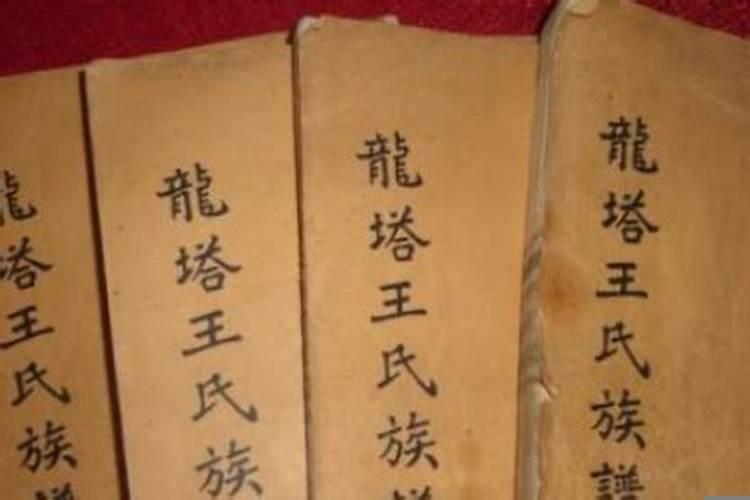 龍塔王氏族譜
龍塔王氏族譜
龍塔王氏族
龍塔王氏族譜